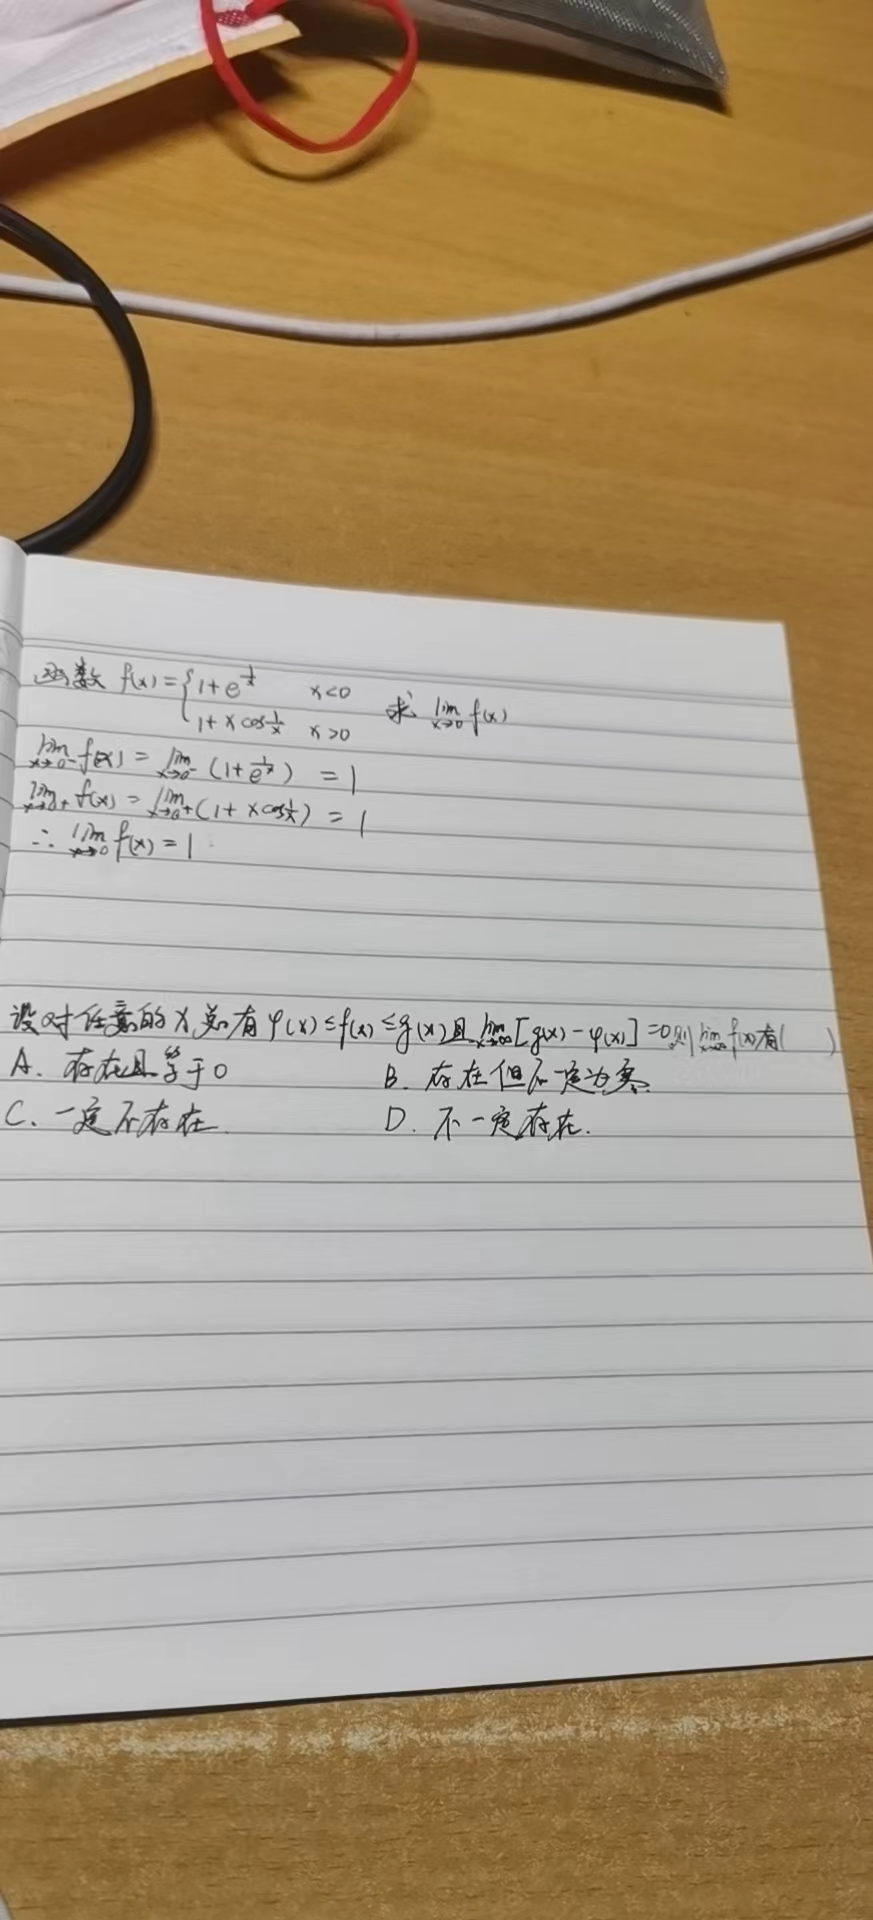 函数 f(x)={1+e^{\frac{1}{x}} x<0
1+xcos\frac{1}{x} x>0 求 \lim_{x→0} f(x)
\lim_{x→0^-} f(x) = \lim_{x→0^-} (1+e^{\frac{1}{x}}) = 1
\lim_{x→0^+} f(x) = \lim_{x→0^+} (1+xcos\frac{1}{x}) = 1
∴ \lim_{x→0} f(x) = 1
设对任意的 x 总有 φ(x)≤f(x)≤g(x)且\lim_{x→∞}[g(x)-φ(x)]=0,则\lim_{x→∞}f(x)有( )
A. 存在且等于0 B. 存在但不一定为零.
C. 一定不存在. D. 不一定存在.